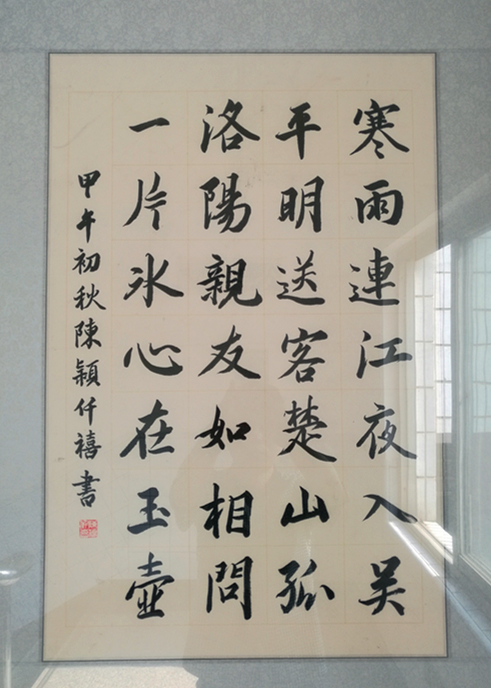 寒雨連江夜入吴
平明送客楚山孤
洛陽親友如相問
一片氷心在玉壺
甲午初秋陳穎仟禧書